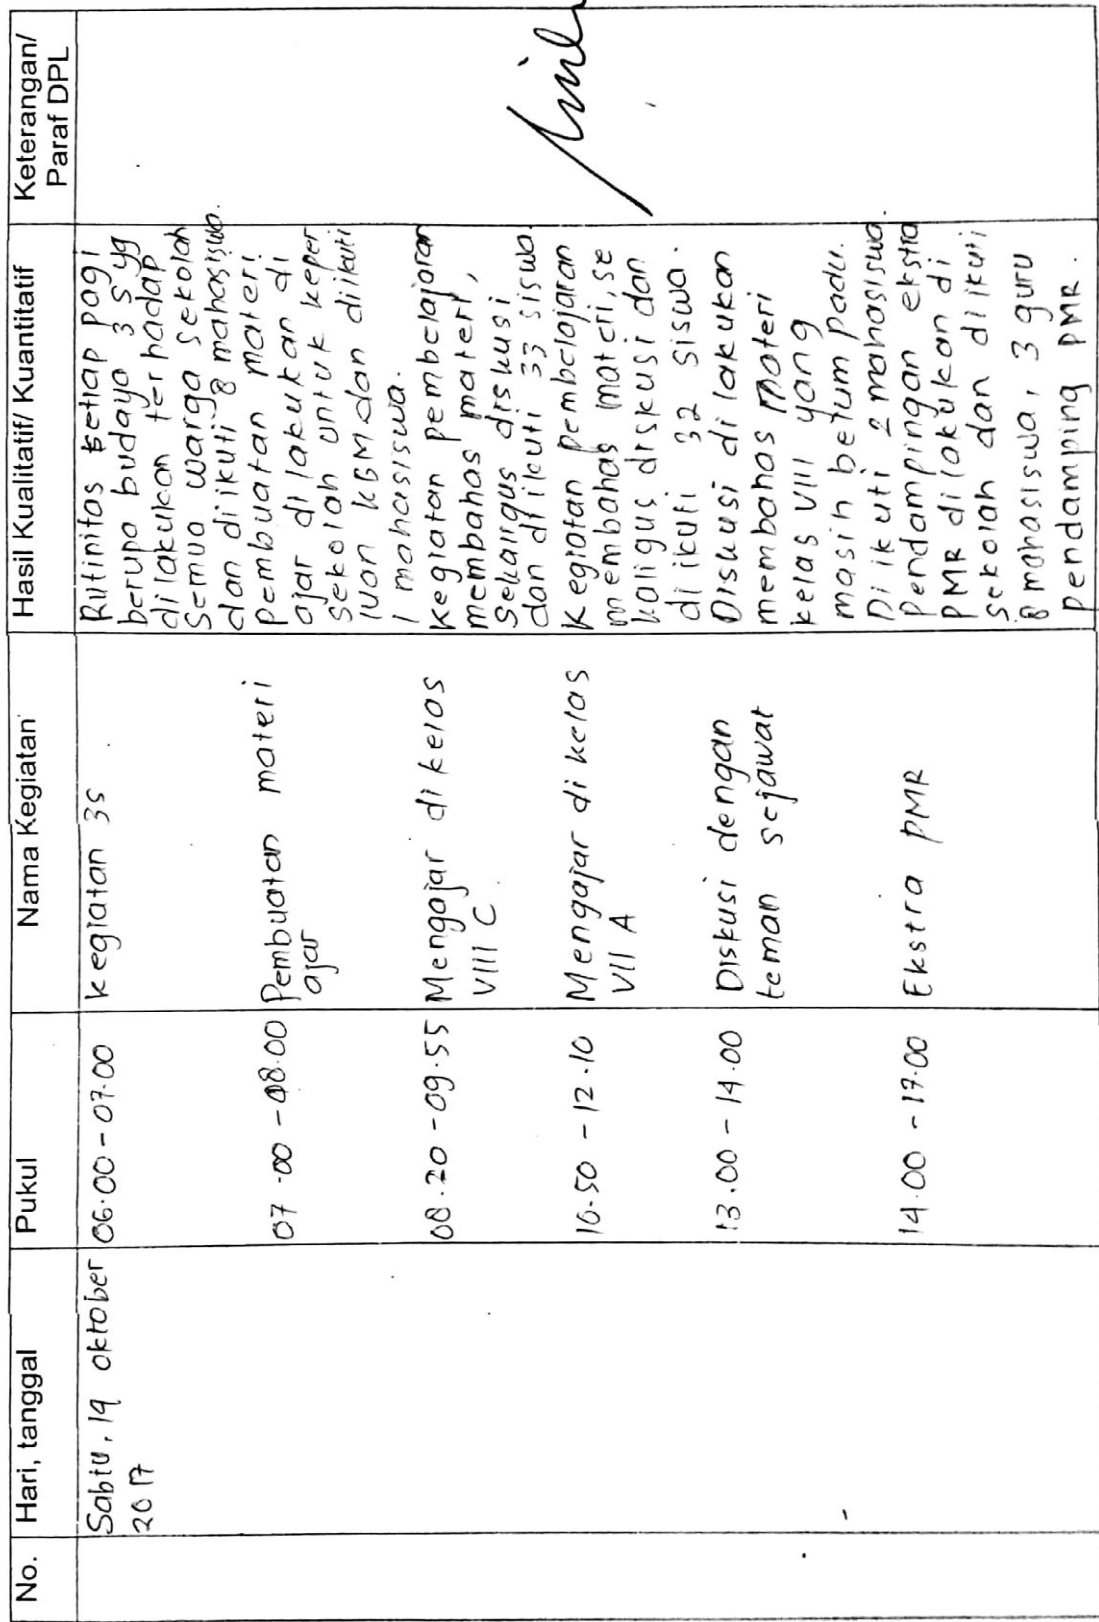 No.
Hari, tanggal
Pukul
Nama Kegiatan
Hasil Kualitatif/ Kuantitatif
Keterangan/
Paraf DPL
Sabtu, 14 oktober
2017
06.00 - 07.00
kegiatan 3S
Rutinitas setiap pagi
berupa budaya 3 S yg
dilakukan terhadap
semua warga sekolah
dan diikuti 8 mahasiswa.
07.00 - 08.00
Pembuatan materi
ajar
pembuatan materi
ajar dilakukan di
sekolah untuk keper
luan KBM dan diikuti
1 mahasiswa.
08.20 - 09.55
Mengajar di kelas
VIII C
Kegiatan pembelajaran
membahas materi,
sekaligus diskusi
dan diikuti 33 siswa.
10.50 - 12.10
Mengajar di kelas
VII A
Kegiatan pembelajaran
membahas materi, se
kaligus diskusi dan
diikuti 32 siswa.
13.00 - 14.00
Diskusi dengan
teman sejawat
Diskusi dilakukan
membahas Materi
kelas VIII yang
masih belum padu.
Diikuti 2 mahasiswa.
14.00 - 17.00
Ekstra PMR
Pendampingan ekstra
PMR dilakukan di
sekolah dan diikuti
8 mahasiswa, 3 guru
pendamping PMR.